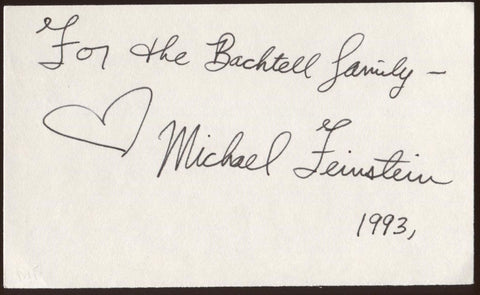 For the Bachtell family –
Michael Feinstein
1993,